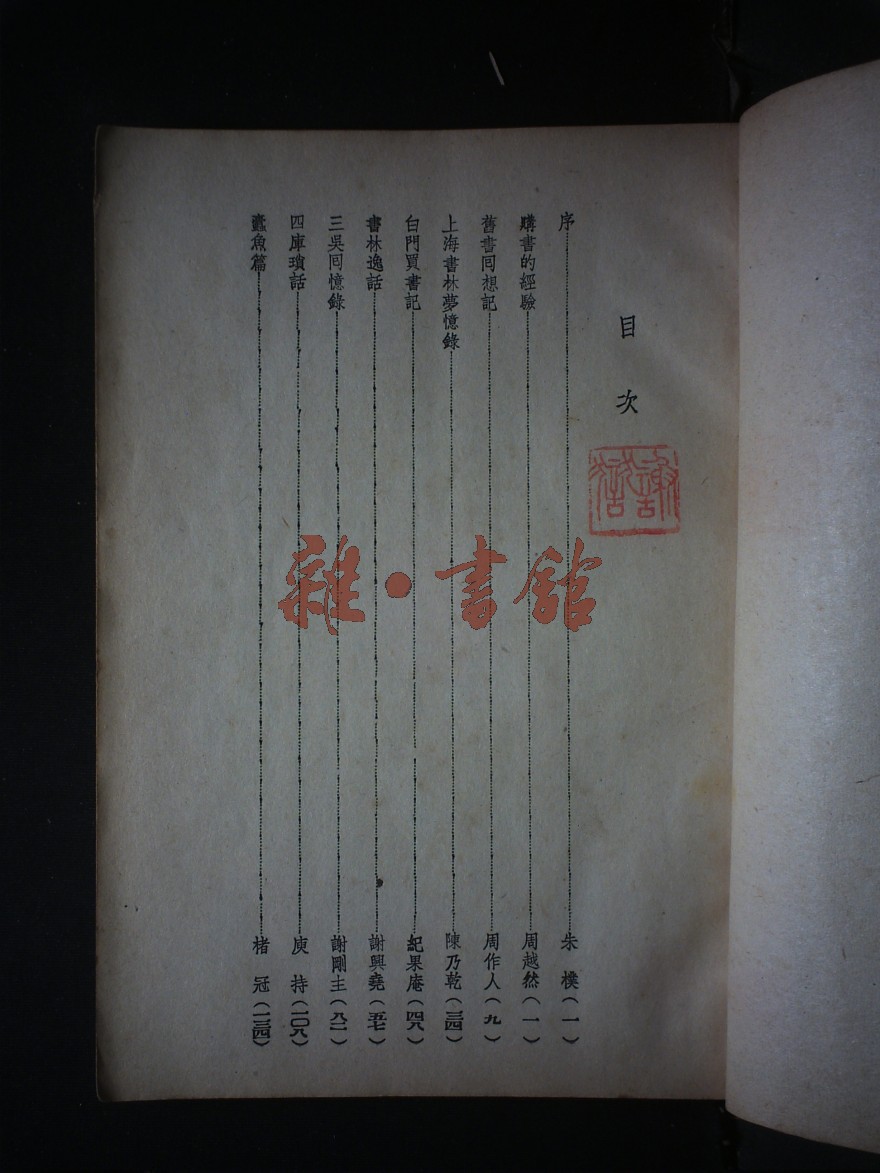 目次
序……朱樸(一)
購書的經驗……周越然(一)
舊書囘想記……周作人(九)
上海書林夢憶錄……陳乃乾(三四)
白門買書記……紀果庵(四八)
書林逸話……謝興堯(五七)
三吳囘憶錄……謝剛主(八一)
四庫瑣話……庾持(一〇八)
蠹魚篇……楮冠(一三四)
雜·書館